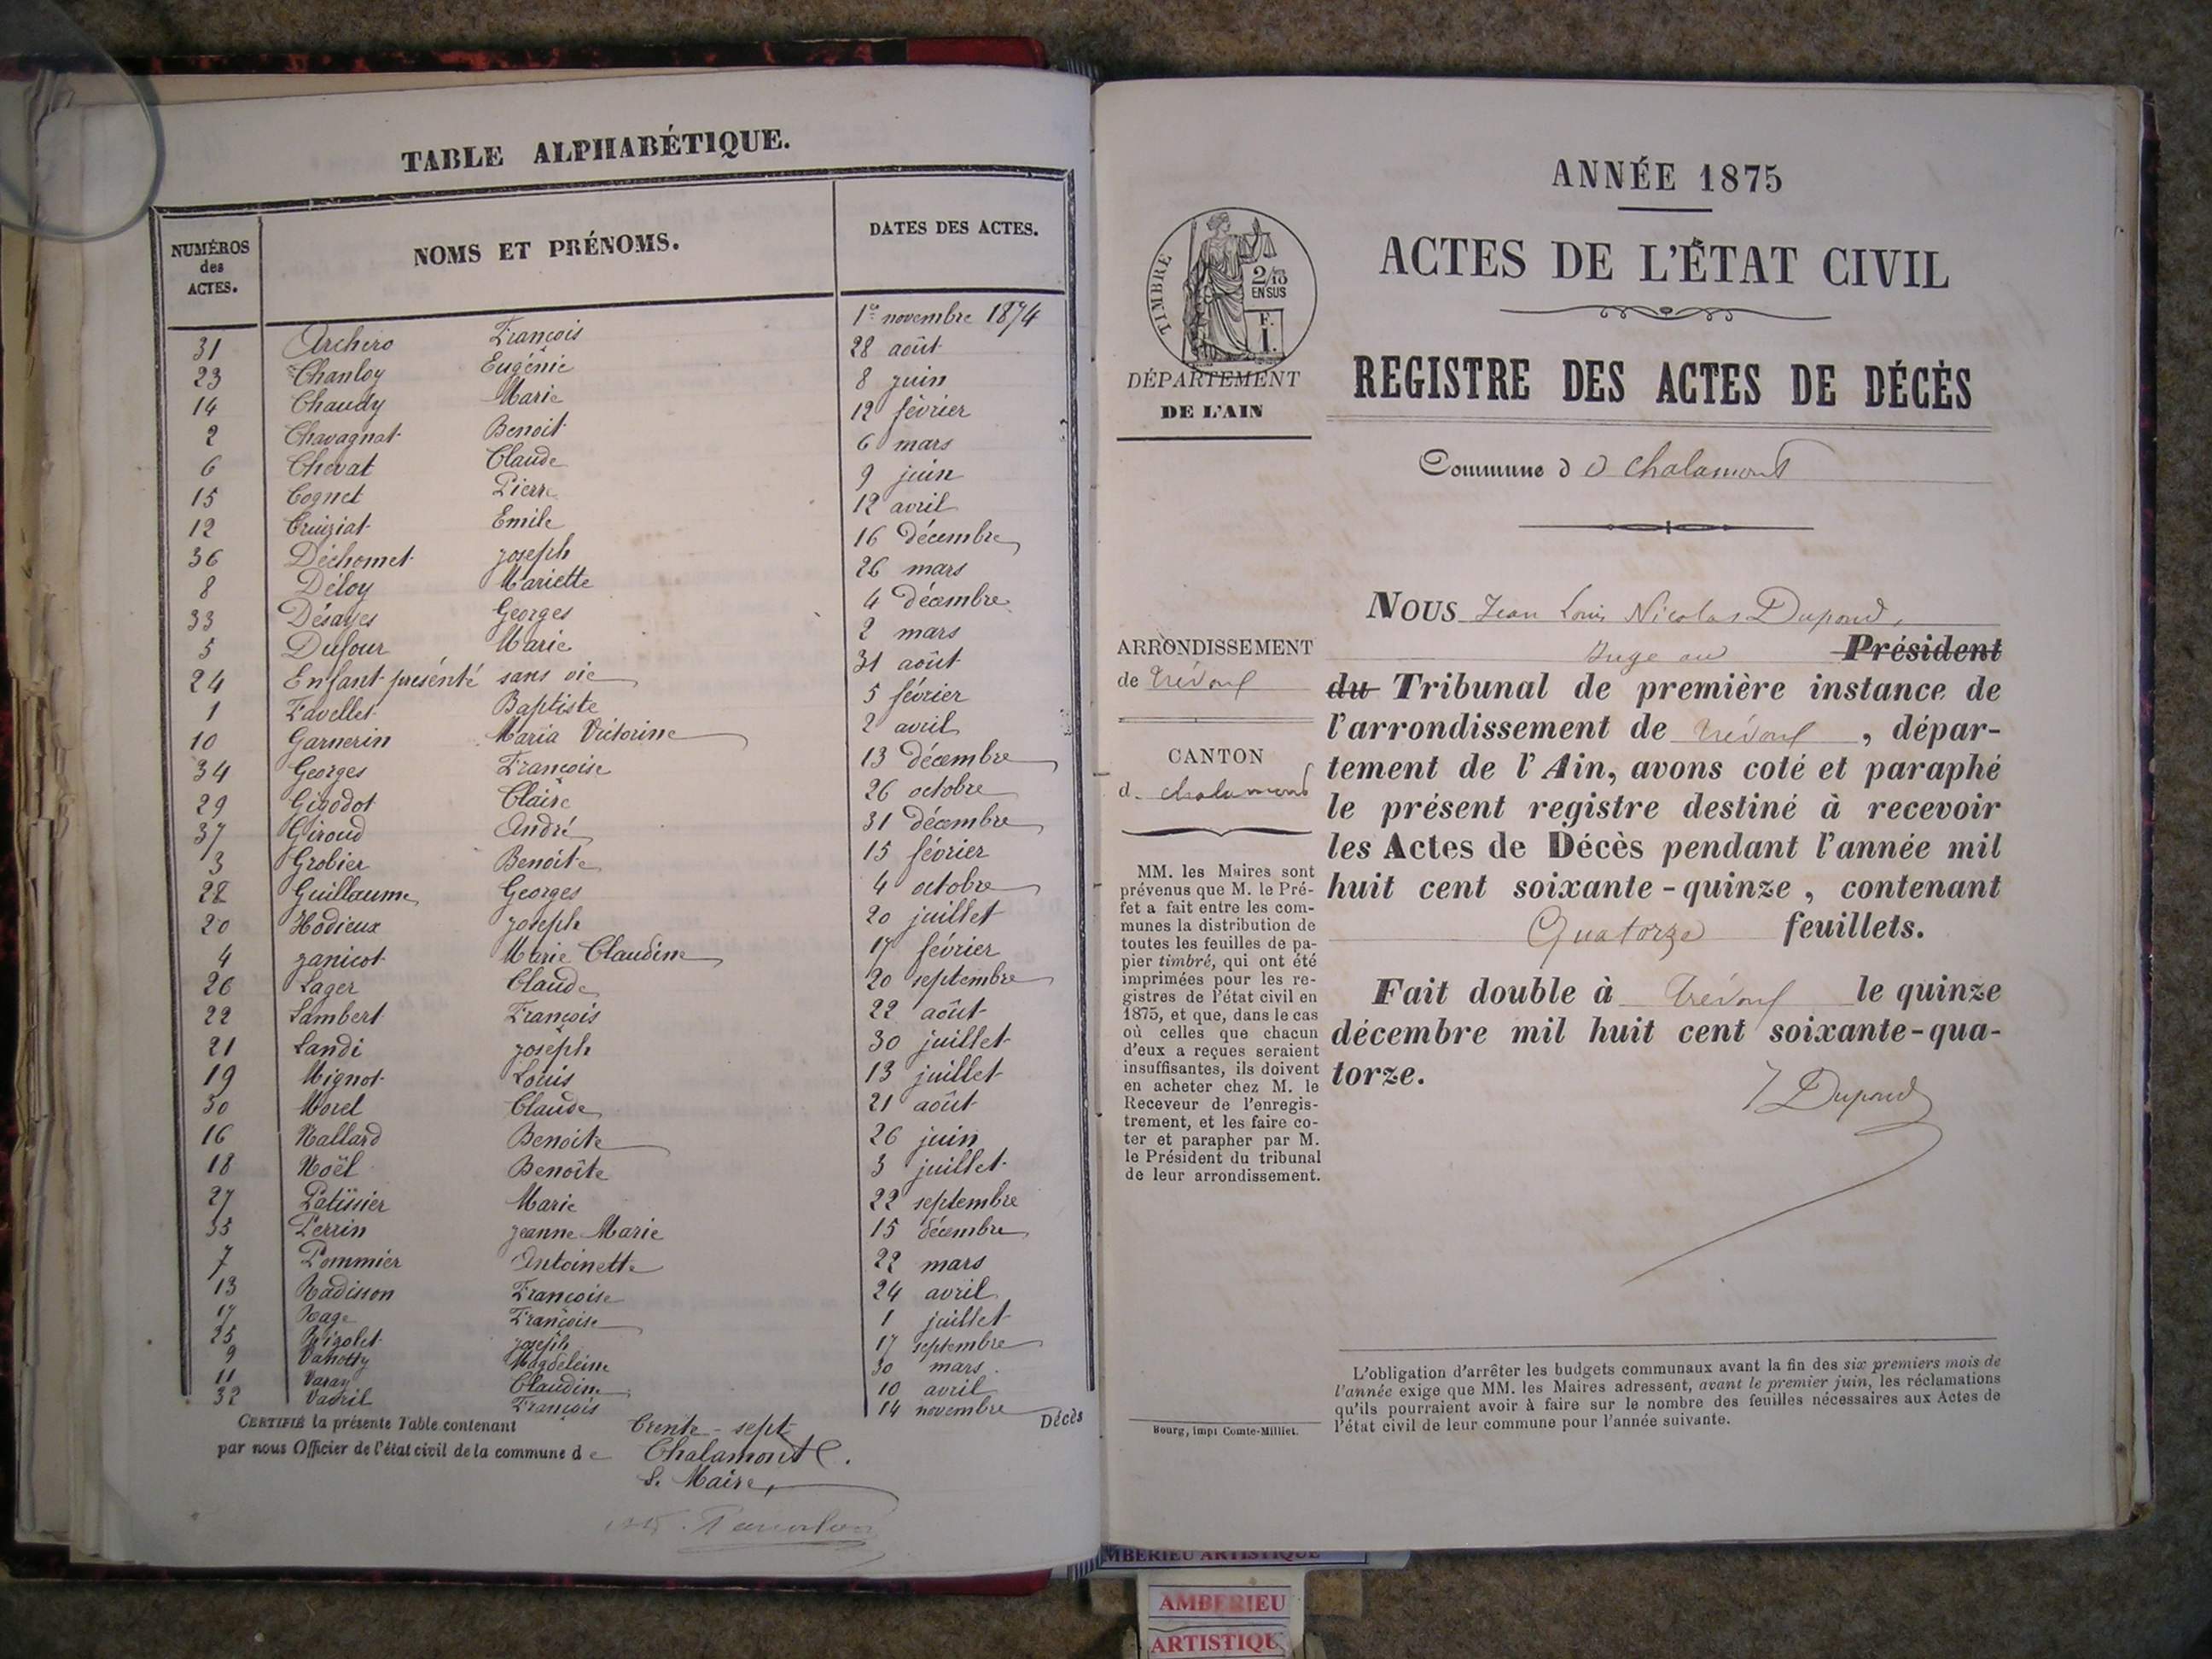 TABLE ALPHABÉTIQUE.
NUMÉROS des ACTES. NOMS ET PRÉNOMS. DATES DES ACTES.
31 Archero François 1er novembre 1874
23 Chanloy Eugénie 28 août
14 Chaudy Marie 8 juin
2 Chavagnat Benoit 12 février
6 Chevat Claude 6 mars
15 Cognet Pierre 9 juin
12 Cruiziat Emile 12 avril
36 Déchomet joseph 16 décembre
8 Déloy Mariette 26 mars
33 Désayes Georges 4 décembre
5 Dufour Marie 2 mars
24 Enfant présenté sans vie 31 août
1 Favellet Baptiste 5 février
10 Garnerin Maria Victorine 2 avril
34 Georges Françoise 13 décembre
29 Gigodot Claire 26 octobre
37 Giroud André 31 décembre
3 Grobier Benoite 15 février
28 Guillaume Georges 4 octobre
20 Hodieux joseph 20 juillet
4 janicot Marie Claudine 17 février
26 Lager Claude 20 septembre
22 Lambert François 22 août
21 Landi joseph 30 juillet
19 Mignot Louis 13 juillet
30 Morel Claude 21 août
16 Nallard Benoite 26 juin
18 Noël Benoîte 3 juillet
27 Patissier Marie 22 septembre
35 Perrin jeanne Marie 15 décembre
7 Pommier Antoinette 22 mars
13 Radisson Françoise 24 avril
17 Rage Françoise 1 juillet
25 Rizolet joseph 17 septembre
9 Magdeleine 30 mars
11 Varay Claudine 10 avril
32 Vadril François 14 novembre
CERTIFIÉ la présente Table contenant Trente-sept Décès
par nous Officier de l'état civil de la commune de Chalamont.
Le Maire,
ANNÉE 1875
ACTES DE L'ÉTAT CIVIL
REGISTRE DES ACTES DE DÉCÈS
Commune d Chalamont
TIMBRE
2/10
EN SUS
F.
1.
DÉPARTEMENT
DE L'AIN
ARRONDISSEMENT
de Trévoux
CANTON
d. chalamont
MM. les Maires sont
prévenus que M. le Pré-
fet a fait entre les com-
munes la distribution de
toutes les feuilles de pa-
pier timbré, qui ont été
imprimées pour les re-
gistres de l'état civil en
1875, et que, dans le cas
où celles que chacun
d'eux a reçues seraient
insuffisantes, ils doivent
en acheter chez M. le
Receveur de l'enregis-
trement, et les faire co-
ter et parapher par M.
le Président du tribunal
de leur arrondissement.
Bourg, impi Comte-Milliet.
NOUS Jean Louis Nicolas Dupond,
Juge au Président
du Tribunal de première instance de
l'arrondissement de Trévoux, dépar-
tement de l'Ain, avons coté et paraphé
le présent registre destiné à recevoir
les Actes de Décès pendant l'année mil
huit cent soixante-quinze, contenant
Quatorze feuillets.
Fait double à Trévoux le quinze
décembre mil huit cent soixante-qua-
torze.
J Dupond
L'obligation d'arrêter les budgets communaux avant la fin des six premiers mois de
l'année exige que MM. les Maires adressent, avant le premier juin, les réclamations
qu'ils pourraient avoir à faire sur le nombre des feuilles nécessaires aux Actes de
l'état civil de leur commune pour l'année suivante.
MBERIEU ARTISTIQUE
AMBERIEU
ARTISTIQU